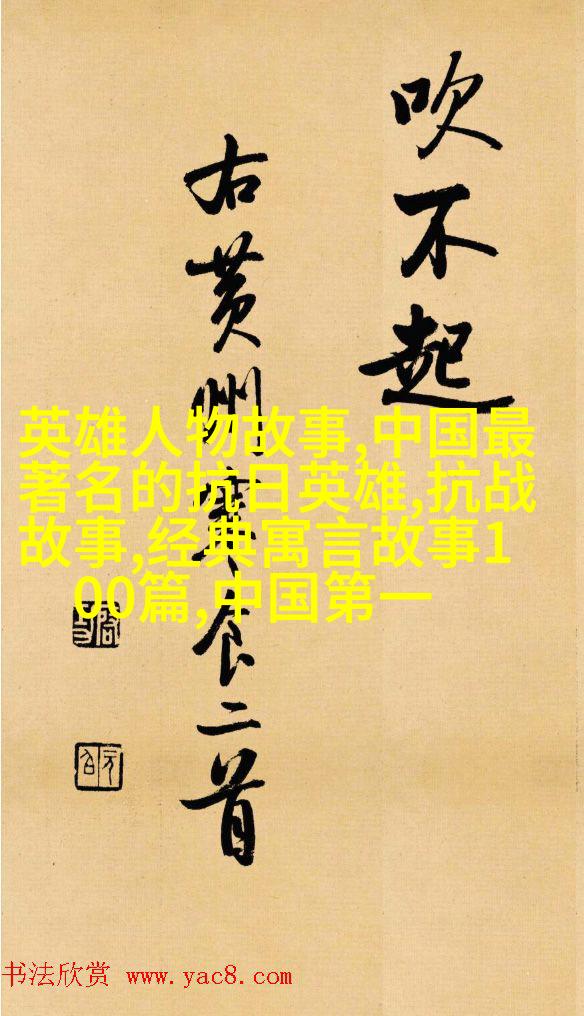 吹不起
右黄州寒食二首
英雄人物故事,中国最
著名的抗日英雄,抗战
故事,经典寓言故事1
00篇,中国第一
启功
元白
书法欣赏 www.yac8.com